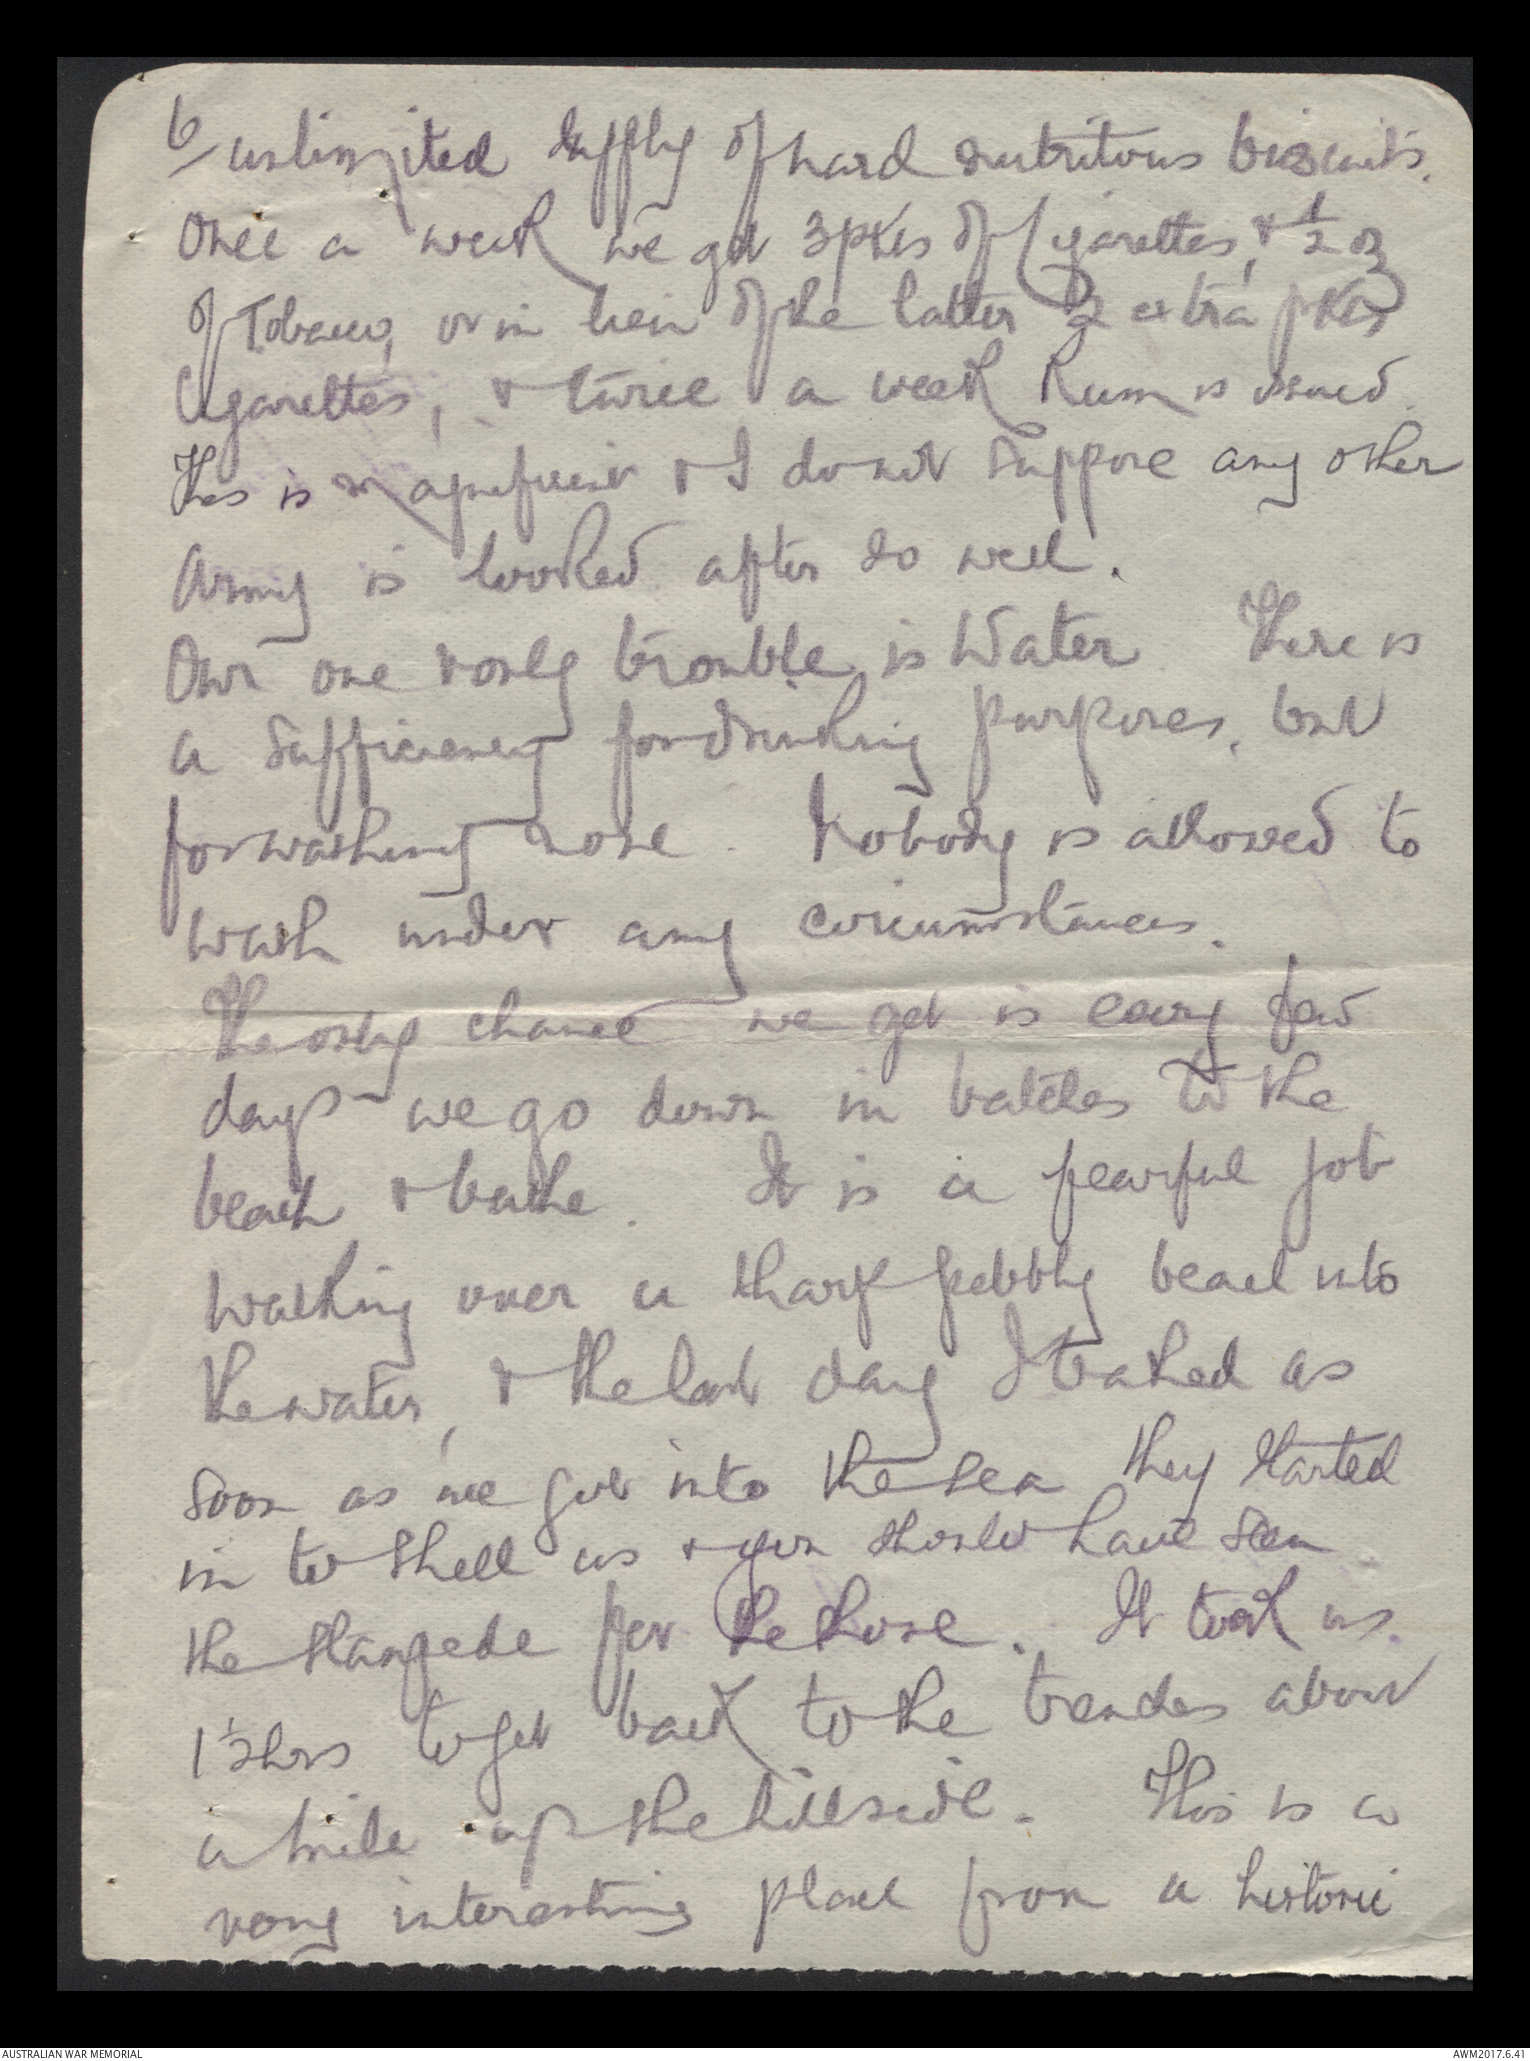 6/ unlimited supply of hard nutritous biscuits.
Once a week we get 3 pkts of Cigarettes, & 1/2 oz
of Tobacco, or in lieu of the latter 2 extra pkts
Cigarettes, & twice a week Rum is issued.
This is magnificent & I do not suppose any other
Army is looked after so well.
Our one & only trouble is Water There is
a sufficiency for drinking purposes, but
for washing none. Nobody is allowed to
wash under any circumstances.
The only chance we get is every few
days we go down in batches to the
beach & bathe. It is a fearful job
walking over a sharp pebbly beach into
the water, & the last day I bathed as
soon as we got into the sea they started
in to shell us & you should have seen
the stampede for the shore. It took us
1 1/2 hrs to get back to the trenches about
a mile up the hillside. This is a
very interesting place from a historic
AUSTRALIAN WAR MEMORIAL
AWM2017.6.41